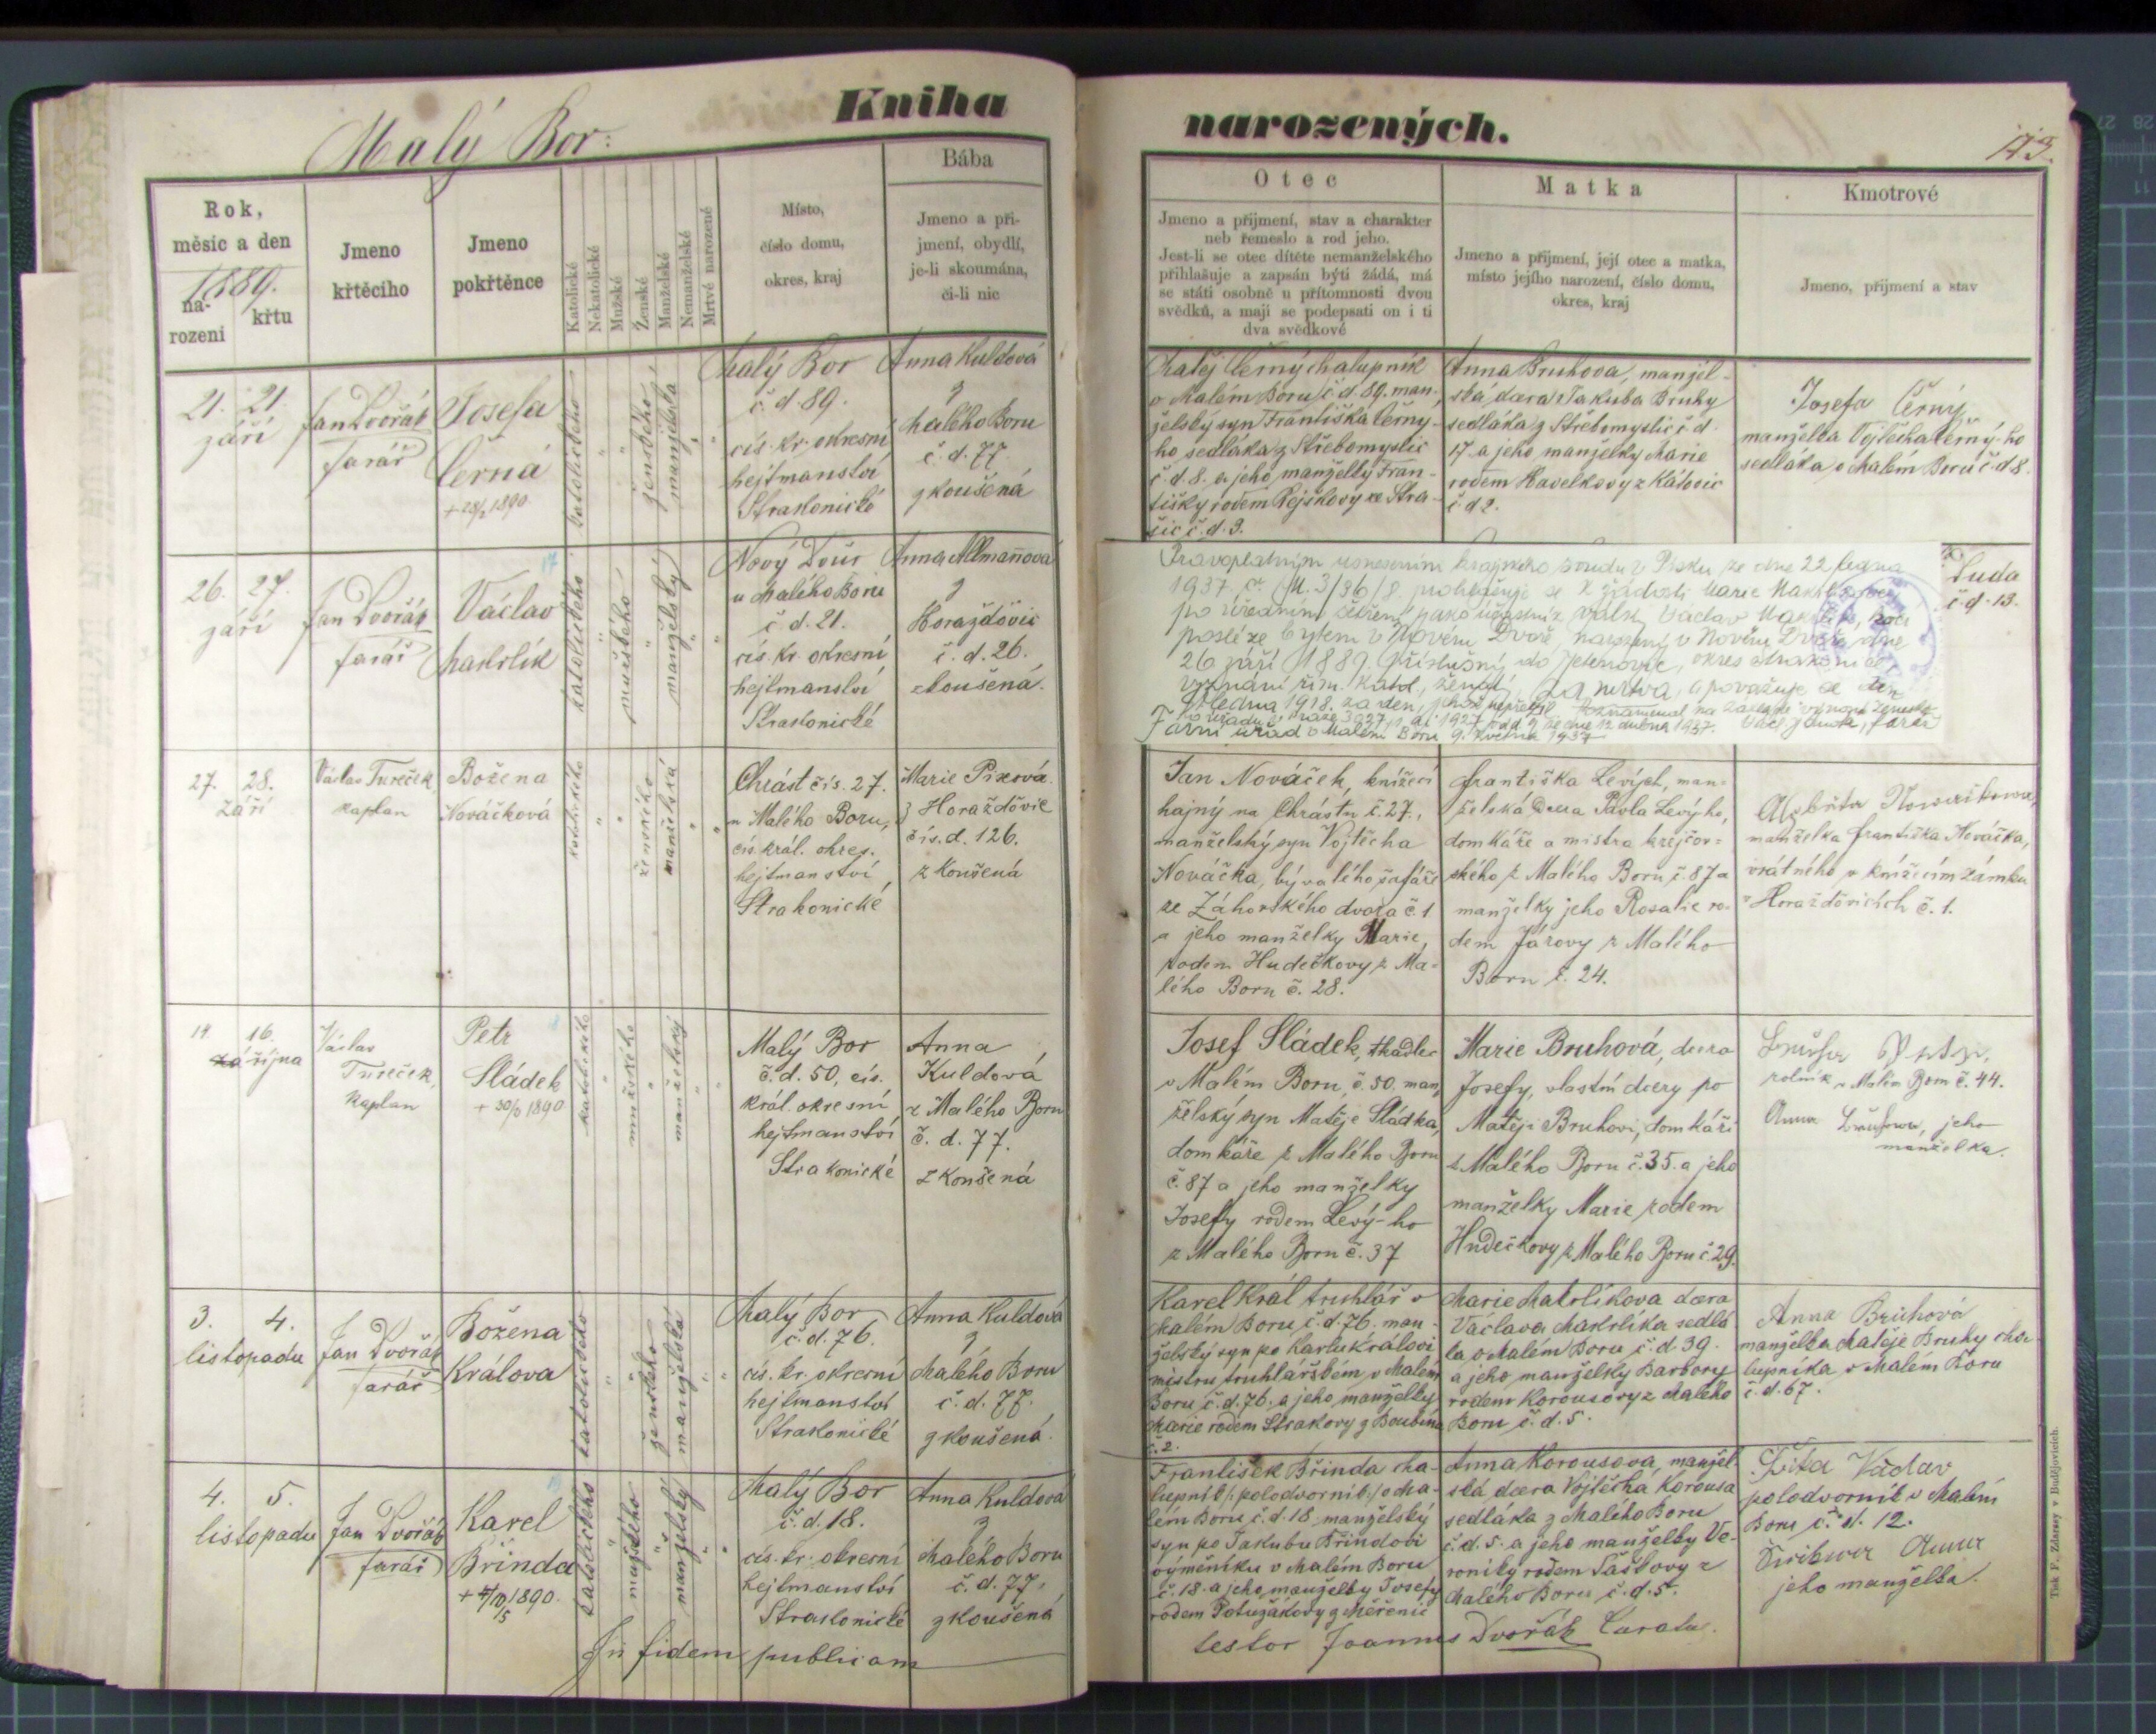 Malý Bor:
Kniha
narozených.
173.
Rok,
měsíc a den
1889.
na-
rození
křtu
Jmeno
křtěcího
Jmeno
pokřtěnce
Katolické
Nekatolické
Mužské
Ženské
Manželské
Nemanželské
Mrtvě narozené
Místo,
číslo domu,
okres, kraj
Bába
Jmeno a při-
jmení, obydlí,
je-li skoumána,
či-li nic
Otec
Jmeno a přijmení, stav a charakter
neb řemeslo a rod jeho.
Jest-li se otec dítěte nemanželského
přihlašuje a zapsán býti žádá, má
se státi osobně u přítomnosti dvou
svědků, a mají se podepsati on i ti
dva svědkové
Matka
Jmeno a přijmení, její otec a matka,
místo jejího narození, číslo domu,
okres, kraj
Kmotrové
Jmeno, přijmení a stav
21. 21.
září
Jan Dvořák
farář
Josefa
Černá
+ 28/2 1890
katolického
"
"
ženského
manželská
"
"
Malý Bor
č. d. 89.
cís. kr. okresní
hejtmanství
Strakonické
Anna Kuldová
z
Malého Boru
č. d. 77.
zkoušená
Matěj Černý chalupník
v Malém Boru č. d. 89. man-
želský syn Františka Černy-
ho sedláka z Střebomyslic
č. d. 8. a jeho manželky Fran-
tišky rodem Rejškovy ze Stra-
šic č. d. 3.
Anna Bruhova, manžel-
ská dcera Jakuba Bruhy
sedláka z Střebomyslic č. d.
17 a jeho manželky Marie
rodem Havelkovy z Kátovic
č. d. 2.
Josefa Černý
manželka Vojtěcha Černý-ho
sedláka v Malém Boru č. d. 8.
26. 27.
září
Jan Dvořák
farář
Václav
Makrlík
katolického
"
mužského
"
manželský
"
"
Nový Dvůr
u Malého Boru
č. d. 21.
cís. kr. okresní
hejtmanství
Strakonické
Anna Allmannova
z
Horažďovic
č. d. 26.
zkoušená.
Pravoplatným usnesením krajského soudu v Písku ze dne 22 ledna
1937 č. 3/36/8. prohlašuje se k žádosti Marie Makrlíkové
po úředním šetření jako účastník války Václav Makrlík,
posléze bytem v Novém Dvoře narozený v Novém Dvoře dne
26 září 1889. příslušný do Jetenovic, okres Strakonice
vyznání řím. katol., ženatý, za mrtva, a považuje se den
ledna 1918. za den, jehož nepřežil.
Farní úřad v Malém Boru 9. května 1937
farář
Suda
č. d. 13.
27. 28.
Září
Václav Tureček
kaplan
Božena
Nováčková
katolického
"
"
ženského
manželská
"
"
Chrást čís. 27.
u Malého Boru,
cís. král. okres.
hejtmanství
Strakonické
Marie Pixová
z Horažďovic
čís. d. 126.
zkoušená
Jan Nováček, knížecí
hajný na Chrástu č. 27.,
manželský syn Vojtěcha
Nováčka, bývalého šafáře
ze Záhorského dvora č. 1
a jeho manželky Marie,
rodem Hudečkovy z Ma-
lého Boru č. 28.
Františka Levých, man-
želská dcera Pavla Levýho,
domkáře a mistra krejčov-
ského z Malého Boru č. 87 a
manželky jeho Rosalie ro-
dem Járovy z Malého
Boru č. 24.
manželka Františka Nováčka,
vrátného v knížecím zámku
v Horažďovicích č. 1.
14 16.
října
Václav
Tureček,
kaplan
Petr
Sládek
+ 30/5 1890
katolického
"
mužského
"
manželský
"
"
Malý Bor
č. d. 50, cís.
král. okresní
hejtmanství
Strakonické
Anna
Kuldová
z Malého Boru
č. d. 77.
zkoušená
Josef Sládek, tkadlec
v Malém Boru, č. 50. man-
želský syn Matěje Sládka,
domkáře z Malého Boru
č. 87 a jeho manželky
Josefy rodem Levý-ho
z Malého Boru č. 37
Marie Bruhová, dcera
Josefy, vlastní dcery po
Matěji Bruhovi, domkáři
z Malého Boru č. 35. a jeho
manželky Marie rodem
Hudečkovy z Malého Boru č. 29.
rolník v Malém Boru č. 44.
Anna jeho
manželka.
3. 4.
listopadu
Jan Dvořák
farář
Božena
Králova
katolického
"
"
ženského
manželská
"
"
Malý Bor
č. d. 76.
cís. kr. okresní
hejtmanství
Strakonické
Anna Kuldová
z
Malého Boru
č. d. 77.
zkoušená.
Karel Král truhlář v
Malém Boru č. d. 76. man-
želský syn po Karlu Královi
mistru truhlářském v Malém
Boru č. d. 76. a jeho manželky
Marie rodem Strakovy z Boubína
č. 2.
Marie Makrlíkova dcera
Václava Makrlíka sedlá-
ka v Malém Boru č. d. 39.
a jeho manželky Barbory
rodem Korousovy z Malého
Boru č. d. 5.
Anna Bruhová
manželka Matěje Bruhy cha-
lupníka v Malém Boru
č. d. 67.
4. 5.
listopadu
Jan Dvořák
farář
Karel
Břinda
+ 4/10 5 1890.
katolického
"
mužského
"
manželský
"
"
Malý Bor
č. d. 18.
cís. kr. okresní
hejtmanství
Strakonické
Anna Kuldová
z
Malého Boru
č. d. 77,
zkoušená
František Břinda cha-
lupník /: polodvorník :/ v Ma-
lém Boru č. d. 18. manželský
syn po Jakubu Břindovi
výměníku v Malém Boru
č. 18. a jeho manželky Josefy
rodem Potužákovy z Měřenic
Anna Korousova, manžel-
ská dcera Vojtěcha Korousa
sedláka z Malého Boru
č. d. 5. a jeho manželky Ve-
roniky rodem Taškovy z
Malého Boru č. d. 5.
Václav
polodvorník v Malém
Boru č. d. 12.
Anna
jeho manželka.
In fidem publicam
testor Joannes Dvořák Curatu.
Tisk F. Zdarssy v Budějovicích.